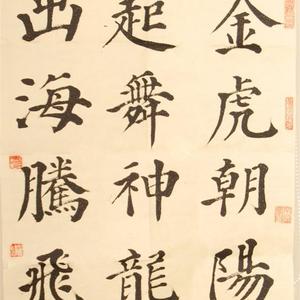 金虎朝陽
起舞神龍
出海騰飛